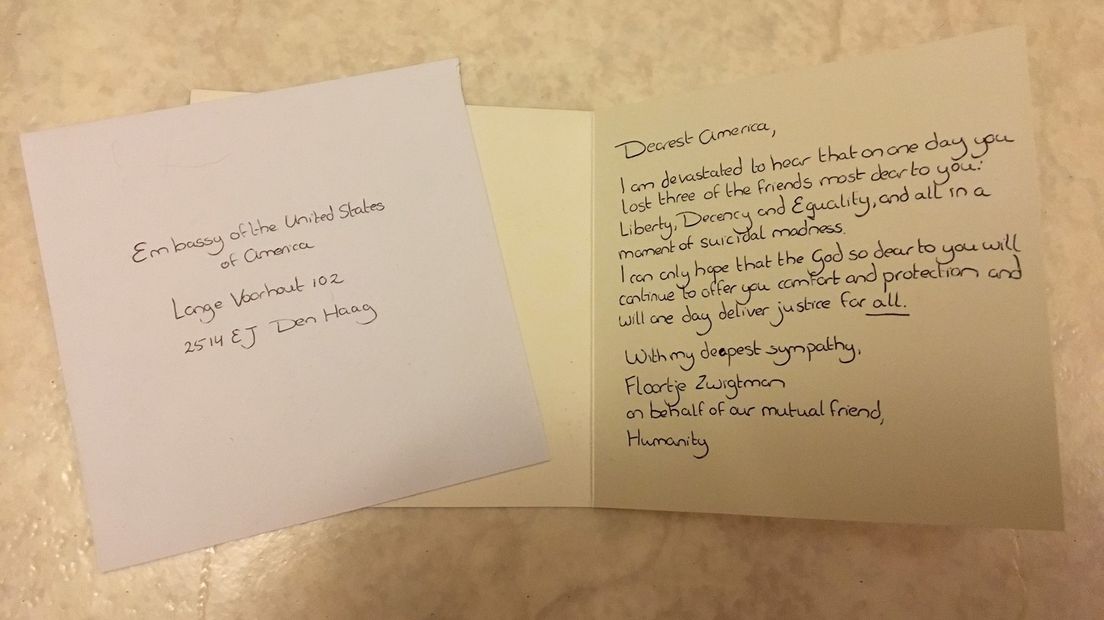 Embassy of the United States
of America
Lange Voorhout 102
2514 EJ Den Haag
Dearest America,
I am devastated to hear that on one day you
lost three of the friends most dear to you:
Liberty, Decency and Equality, and all in a
moment of suicidal madness.
I can only hope that the God so dear to you will
continue to offer you comfort and protection and
will one day deliver justice for all.
With my deepest sympathy,
Floortje Zwigtman
on behalf of our mutual friend,
Humanity